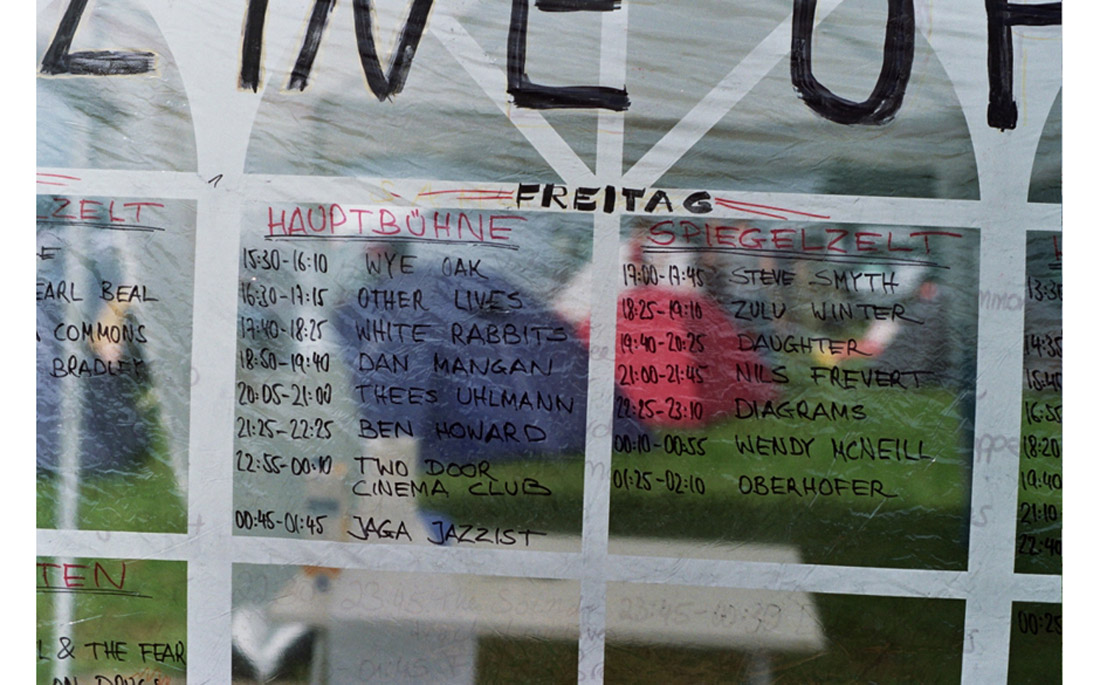 LINE UP
FREITAG
ZELT
EARL BEAL
COMMONS
BRADLEY
HAUPTBÜHNE
15:30-16:10 WYE OAK
16:30-17:15 OTHER LIVES
17:40-18:25 WHITE RABBITS
18:50-19:40 DAN MANGAN
20:05-21:00 THEES UHLMANN
21:25-22:25 BEN HOWARD
22:55-00:10 TWO DOOR
CINEMA CLUB
00:45-01:45 JAGA JAZZIST
SPIEGELZELT
17:00-17:45 STEVE SMYTH
18:25-19:10 ZULU WINTER
19:40-20:25 DAUGHTER
21:00-21:45 NILS FREVERT
22:25-23:10 DIAGRAMS
00:10-00:55 WENDY MCNEILL
01:25-02:10 OBERHOFER
13:30
14:35
15:45
16:55
18:20
19:40
21:10
22:40
TEN
& THE FEAR
00:25